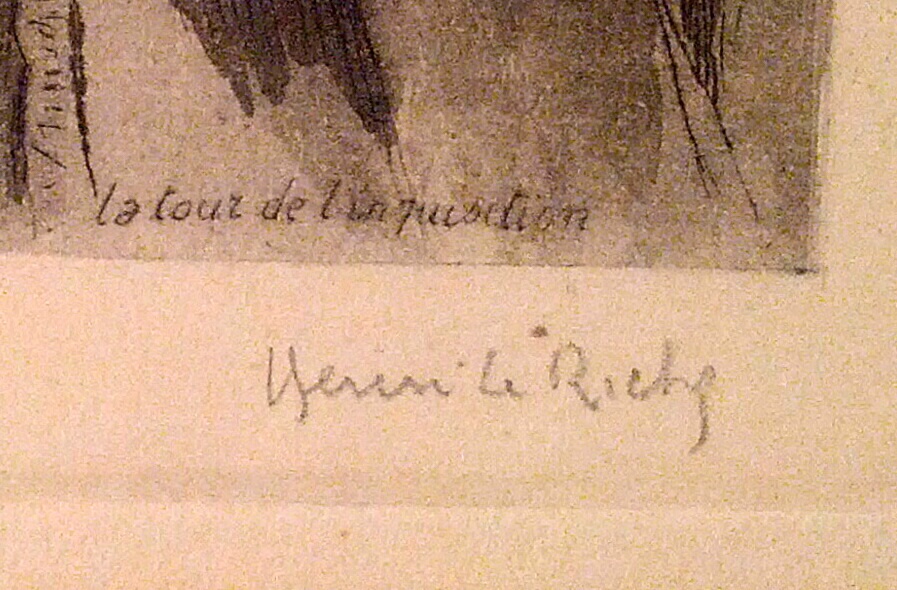 la tour de l'inquisition
Henri le Riche